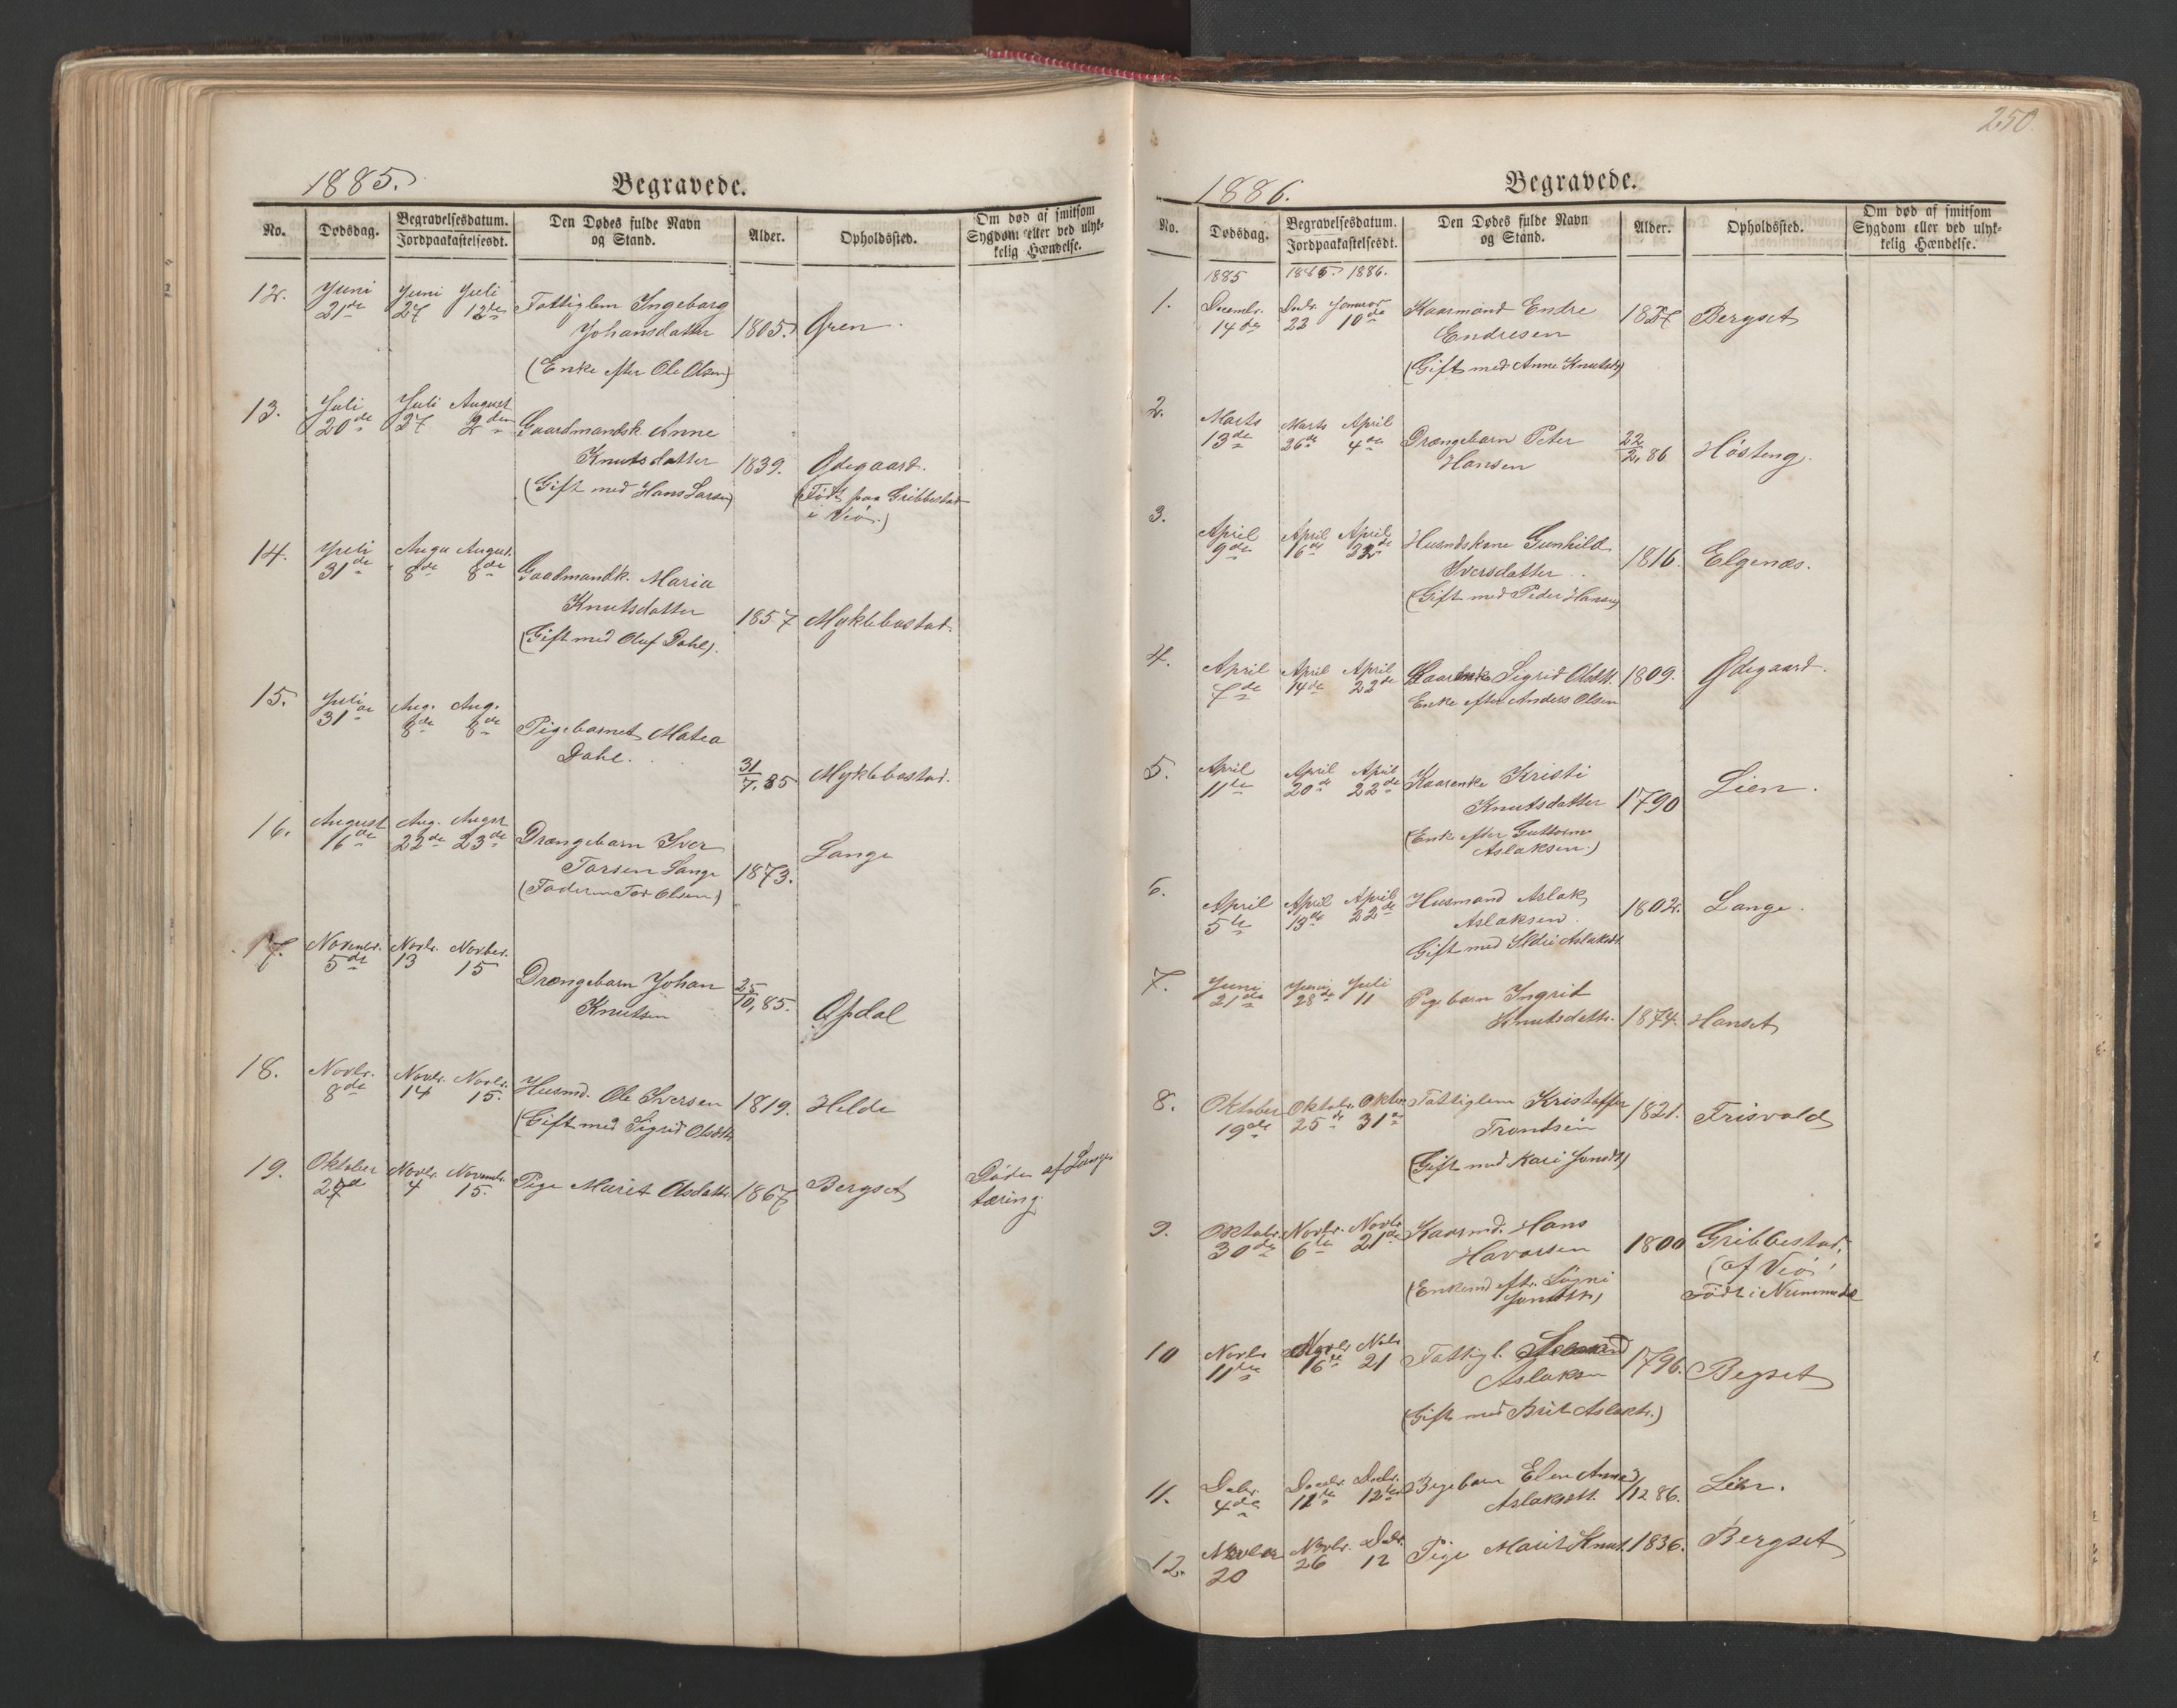 1885.
Begravede.
No.
Dødsdag.
Begravelsesdatum.
Jordpaakastelsesdt.
Den Dødes fulde Navn
og Stand.
Alder.
Opholdssted.
Om død af smitsom
Sygdom eller ved ulyk-
kelig Hændelse.
12. Juni Juni Juli Fattiglem Ingeborg
21de 27 12de Johansdatter 1805. Øren.
(Enke efter Ole Olsen)
13. Juli Juli August
20de 27 2den Gaardmandsk. Anne
Knutsdatter 1839. Ødegaard.
(Gift med Hans Larsen) (Født paa Gribbestad
i Veø.)
14. Juli Augu August.
31de 8de 8de Gaadmandk. Maria
Knutsdatter 1857 Myklebostad.
(Gift med Oluf Dahl).
15. Juli Aug. Aug.
31de 8de 8de Pigebarnet Matea
Dahl. 31/7.85 Myklebostad.
16. August Aug. Augst Drængebarn Iver
16de 22de 23de Torsen Lange 1873. Lange
(Faderen Tor Olsen)
17. Novembr. Novbr. Novber.
5de 13 15
Drængebarn Johan 25/10,85.
Knutsen Opdal
18. Novbr. Novbr. Novbr.
8de 14 15. Husmd. Ole Iversen 1819. Helde
(Gift med Sigrid Olsdttr
19. Oktober Novbr. Novembr.
27de 4 15. Pige Marit Olsdattr. 1867 Bergset Døden af Lunge
tæring.
250.
1886.
Begravede.
No.
Dødsdag.
Begravelsesdatum.
Jordpaakastelsesdt.
Den Dødes fulde Navn
og Stand.
Alder.
Opholdssted.
Om død af smitsom
Sygdom eller ved ulyk-
kelig Hændelse.
1885 1885. 1886.
1. Decembr. Decbr. Januar Kaarmand Endre
14de 22 10de Endresen 1827 Bergset
(Gift med Anne Knutsdt)
2. Marts Marts April
13de 26de 4de Drængebarn Peter 22/2,86 Høsteng.
Hansen
3. April April April Husmdskone Gunhild
9de 16de Iversdatter 1816. Elgenæs.
(Gift med Peder Hansen)
4. April April April
7de 14de 22de Kaarenke Sigrid Olsdtt. 1809. Ødegaard.
Enke efter Anders Olsen
5. April April April Kaarenke Kristi
11te 20de 22de Knutsdatter 1790 Lien.
(Enke efter Guttorm
Aslaksen.)
6. April April April Husmand Aslak
5te 13de 22de Aslaksen. 1802. Lange.
Gift med Aslaksdt.
7. Juni Juni Juli
21de 28de 11 Pigebarn Ingrid
Knutsdattr. 1874. Hanset
8. Oktober Oktobr. Oktbr. Fattiglem Kristoffer
19de 25de 31te Trondsen 1821. Frisvold
(Gift med Kari Jonsdt)
9. Oktobr. Novbr. Novbr. Kaarmd. Hans
30de 6te 21de Havorsen 1800 Gribbestad,
(Enkemd eftr. Jonsdttr) (af Veø)
Født i Nummedal
10 Novbr Novbr Nobr Fattigl.
11te 16de 21 Aslaksen 1796. Begset
(Gift med Brit Aslakdt.)
11. Debr. Decbr. Decbr. Pigebarn Elen Anna
4de 11te 12te Aslaksdtt. /12 86. Lien.
12. Novbr Novbr. Debr. Pige Marit Knut. 1836. Bergset
20 26 12